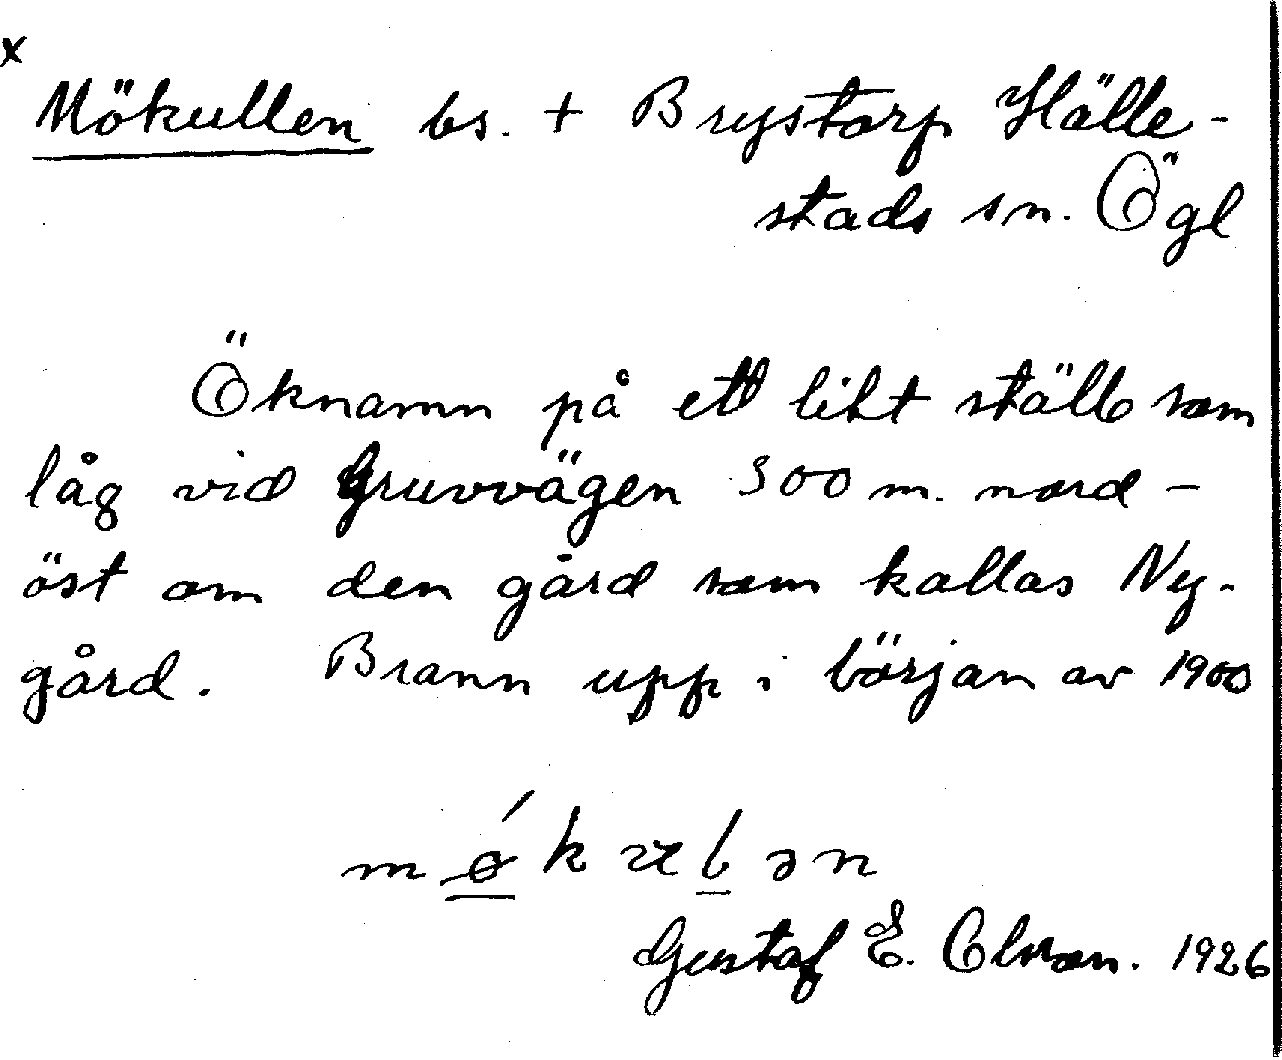 x
Mökullen bs. + Brystorp Hälle-
stads sn. Ögl
Öknamn på ett litet ställe som
låg vid Gruvvägen 300 m. nord-
öst om den gård som kallas Ny-
gård. Brann upp i början av 1900
Gustaf E. Olsson. 1926